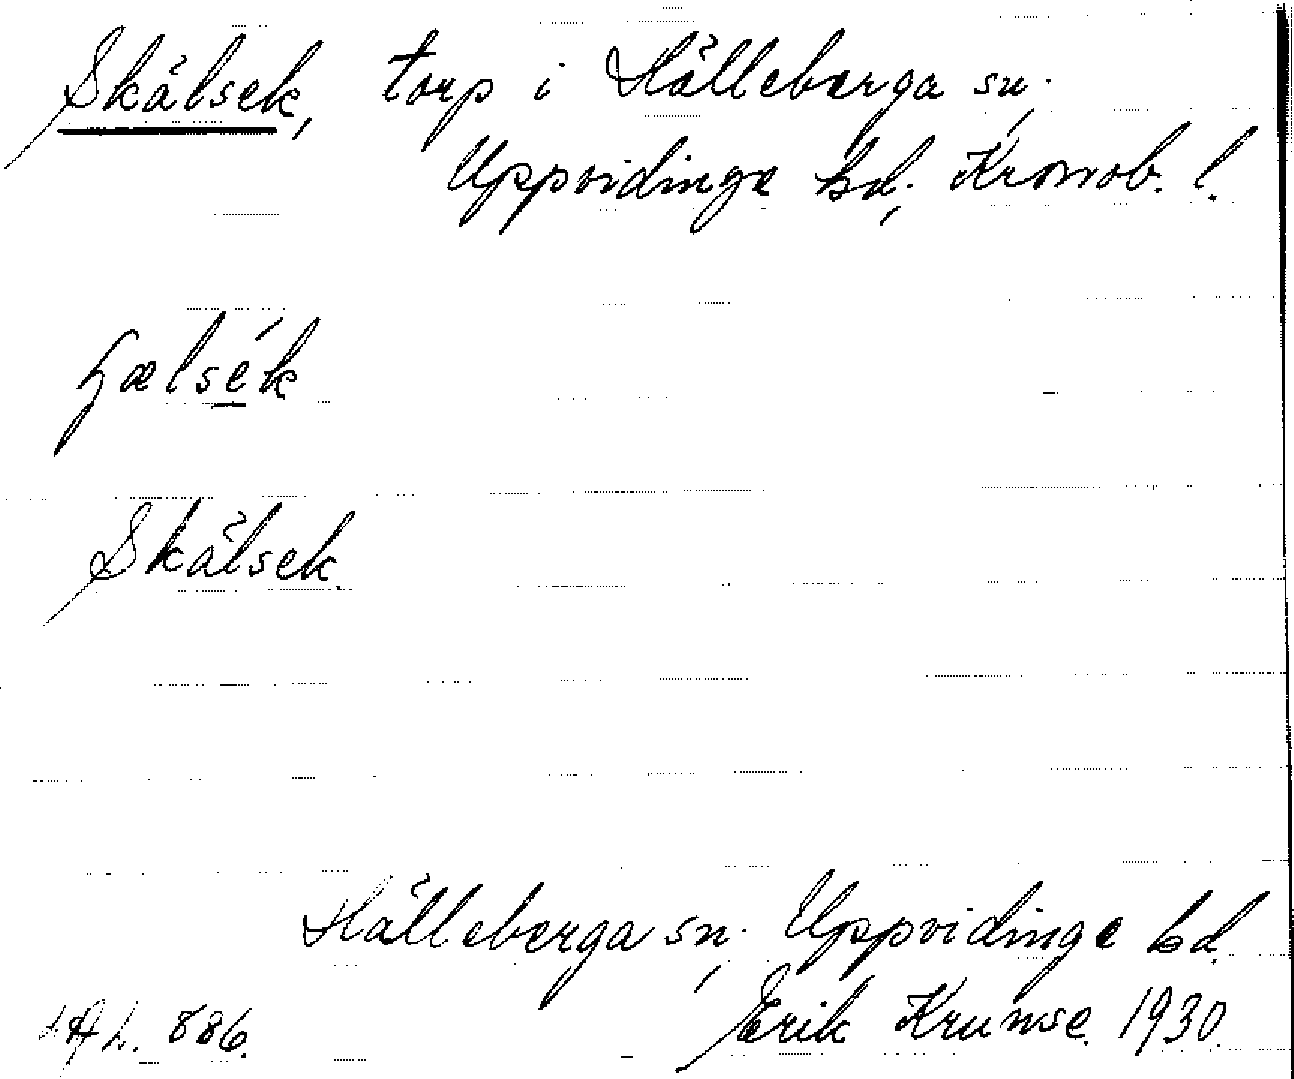 Skälsek, torp i Hälleberga sn.
Uppvidinge hd, Kronob. l.
Skälsek.
Hälleberga sn, Uppvidinge hd.
Erik Krunse. 1930.
A L. 886.